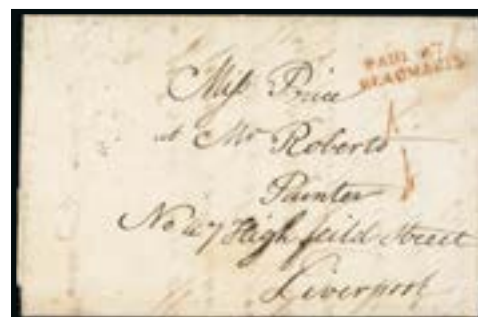 PAID AT
BEAUMARIS
Miss Price
at Mr Roberts
Painter
No 47 High feild Street
Liverpool